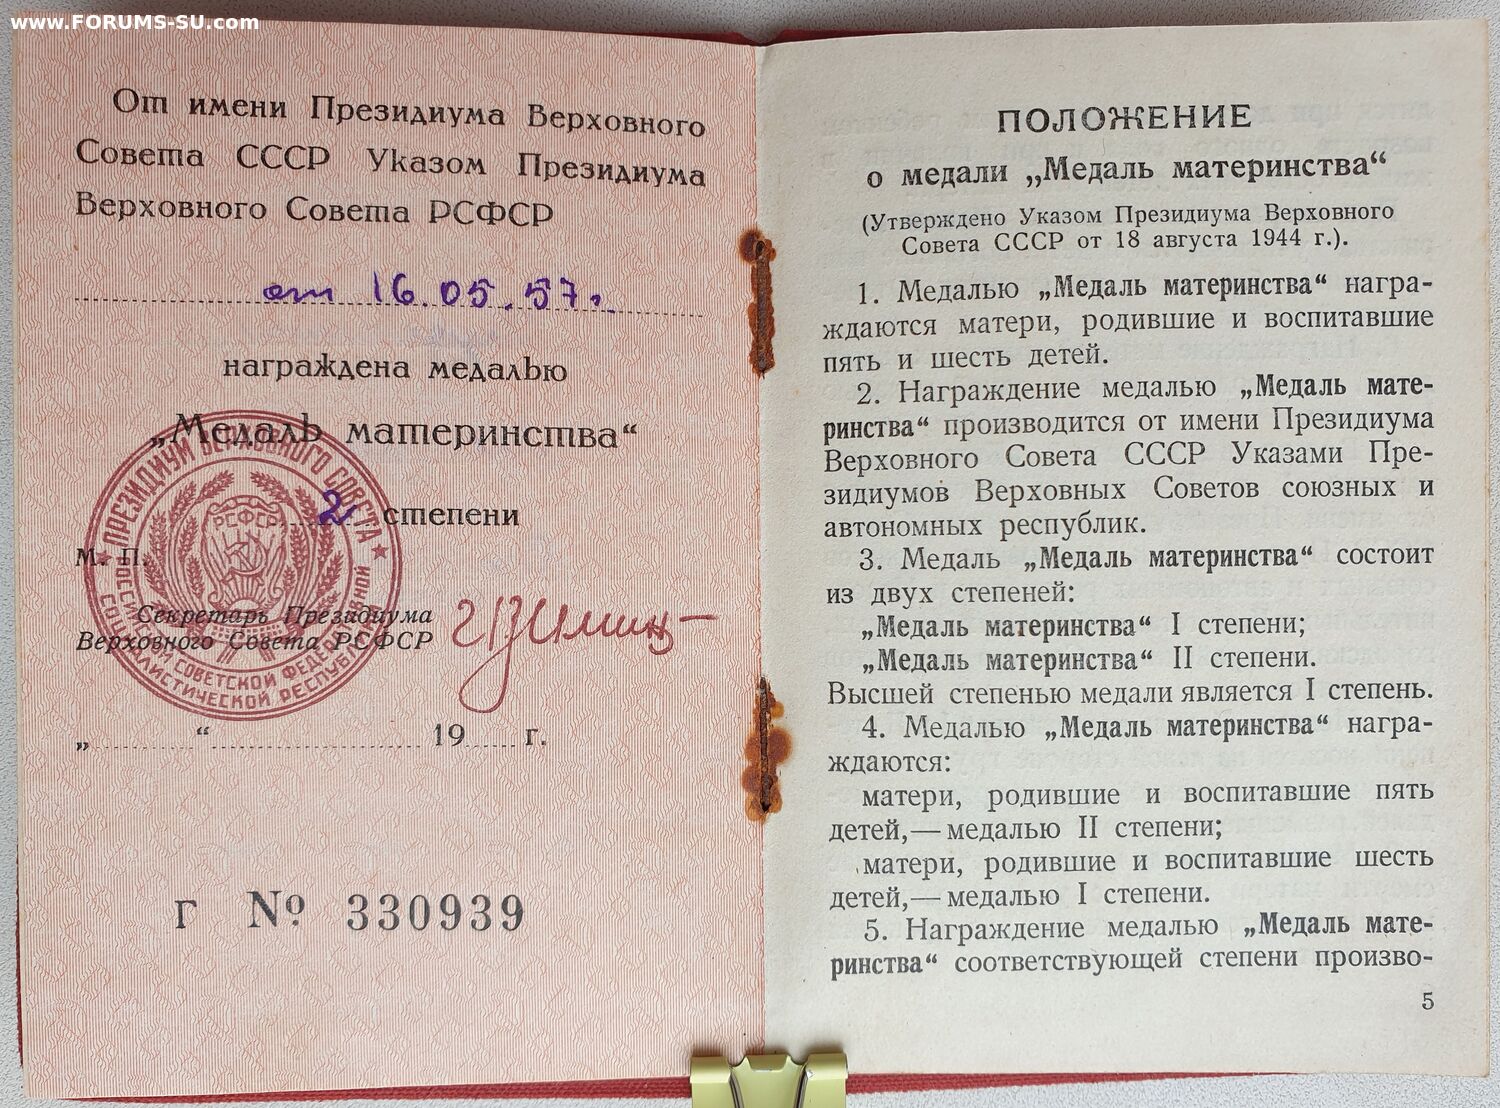 www.FORUMS-SU.com
От имени Президиума Верховного
Совета СССР Указом Президиума
Верховного Совета РСФСР
от 16.05.57г.
награждена медалью
„Медаль материнства“
2 степени
М. П.
ПРЕЗИДИУМ ВЕРХОВНОГО СОВЕТА
РОССИЙСКОЙ СОВЕТСКОЙ ФЕДЕРАТИВНОЙ
СОЦИАЛИСТИЧЕСКОЙ РЕСПУБЛИКИ
РСФСР
Секретарь Президиума
Верховного Совета РСФСР
„ “ 19 г.
Г № 330939
ПОЛОЖЕНИЕ
о медали „Медаль материнства“
(Утверждено Указом Президиума Верховного
Совета СССР от 18 августа 1944 г.).
1. Медалью „Медаль материнства“ награ-
ждаются матери, родившие и воспитавшие
пять и шесть детей.
2. Награждение медалью „Медаль мате-
ринства“ производится от имени Президиума
Верховного Совета СССР Указами Пре-
зидиумов Верховных Советов союзных и
автономных республик.
3. Медаль „Медаль материнства“ состоит
из двух степеней:
„Медаль материнства“ I степени;
„Медаль материнства“ II степени.
Высшей степенью медали является I степень.
4. Медалью „Медаль материнства“ награ-
ждаются:
матери, родившие и воспитавшие пять
детей,— медалью II степени;
матери, родившие и воспитавшие шесть
детей,— медалью I степени.
5. Награждение медалью „Медаль мате-
ринства“ соответствующей степени произво-
5